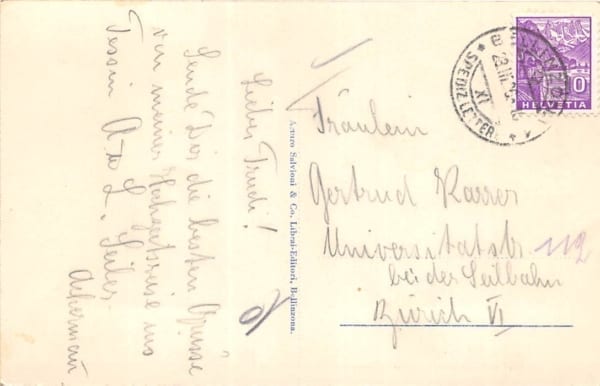 Liebes Trudi!
Sende Dir die besten Grüsse
von meiner Hochzeitsreise ins
Tessin A u L. Seiler
Ackermann
Arturo Salvioni & Co. Librai-Editori, Bellinzona.
Fräulein
Gertrud Karrer
Universitätstr 112
bei der Seilbahn
Zürich VI
BELLINZONA
SPEDIZ. LETTERE
XI
10
HELVETIA